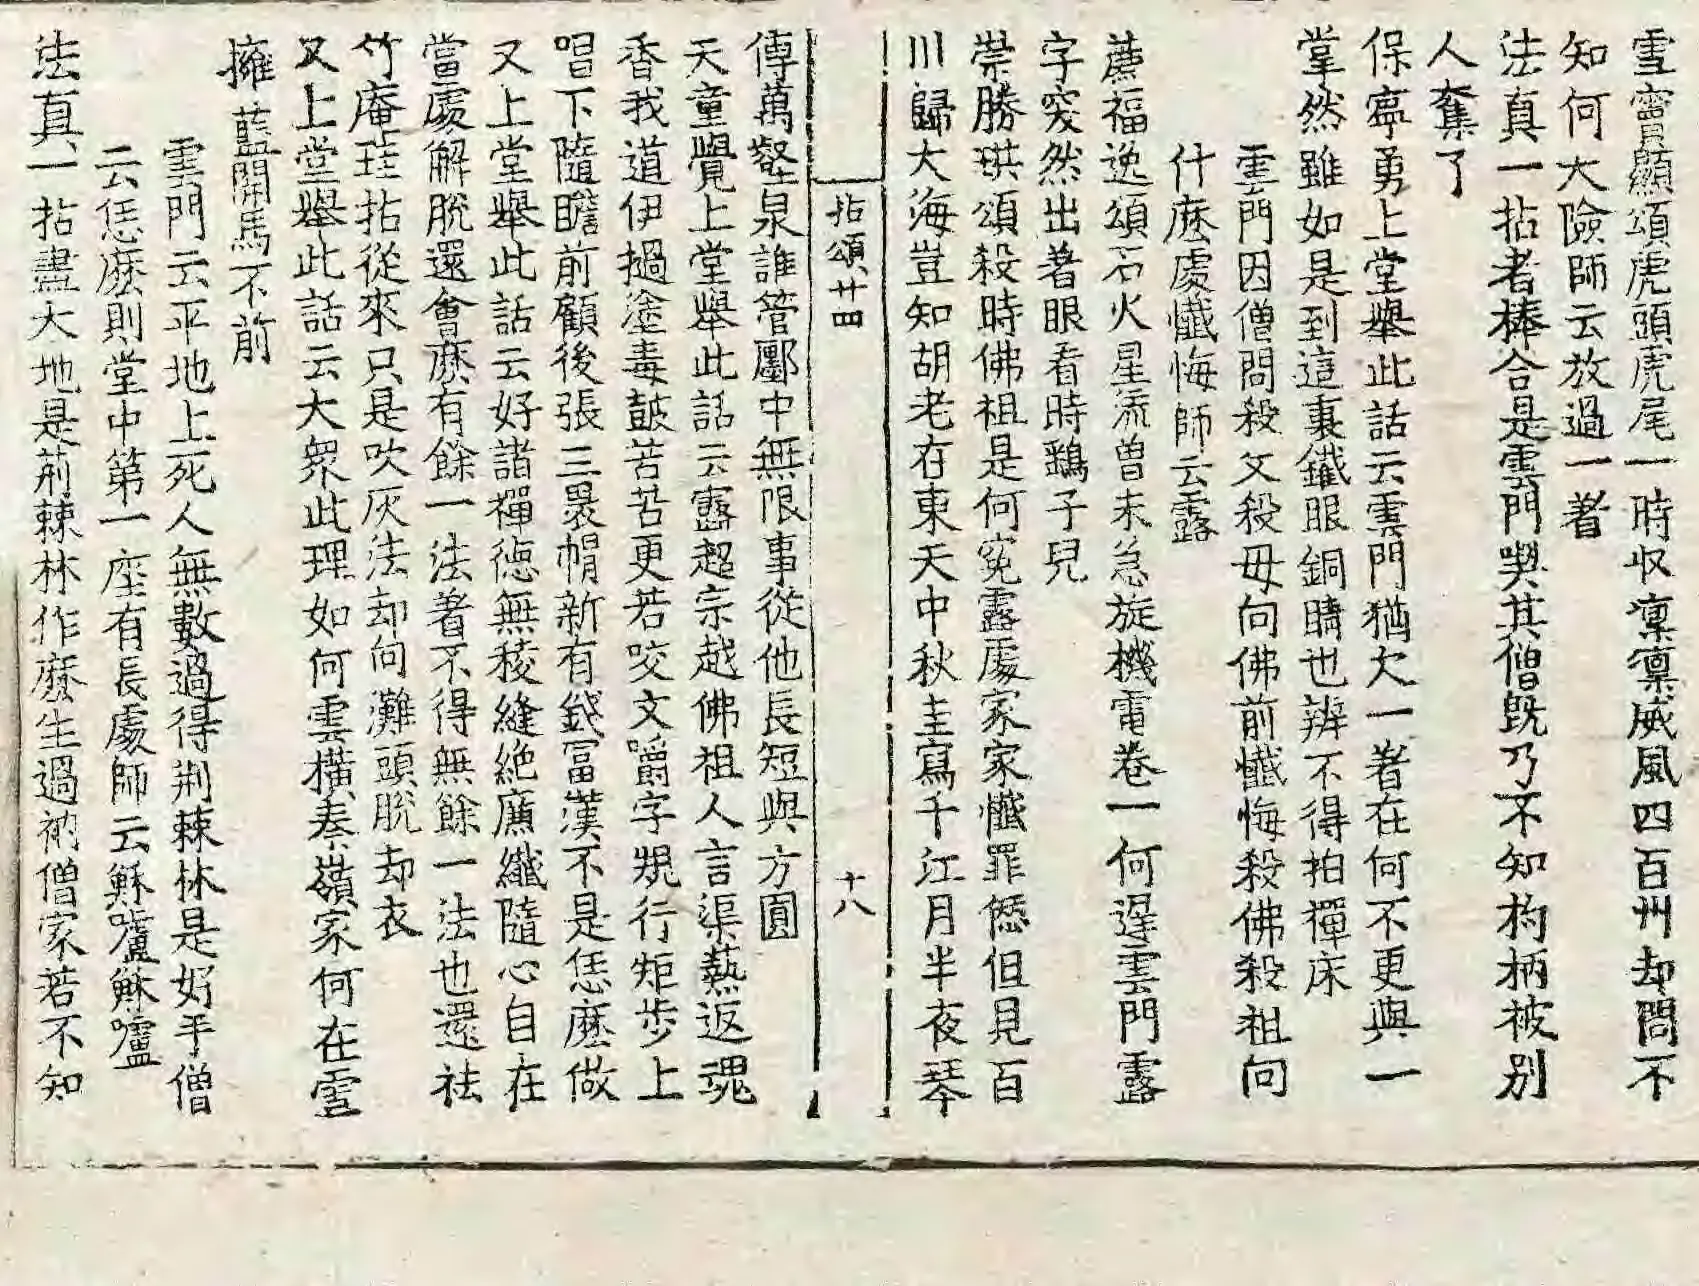 雪竇顯頌虎頭虎尾一時収凛凛威風四百州却問不
知何大險師云放過一著
法真一拈者棒合是雲門喫其僧旣乃不知杓柄被别
人奪了
保寧勇上堂舉此話云雲門猶欠一著在何不更與一
掌然雖如是到這裏鐵眼銅睛也辨不得拍禪床
雲門因僧問殺父殺母向佛前懺悔殺佛殺祖向
什麽處懺悔師云露
薦福逸頌石火星流曾未急旋機電卷一何遲雲門露
字突然出著眼看時鷂子兒
崇勝珙頌殺時佛祖是何寃露處家家懺罪愆但見百
川歸大海豈知胡老在東天中秋圭寫千江月半夜琴
拈頌廿四
十八
傳萬壑泉誰管郢中無限事從他長短與方圓
天童覺上堂舉此話云露超宗越佛祖人言渠爇返魂
香我道伊撾塗毒皷苦苦更若咬文嚼字規行矩步上
唱下隨瞻前顧後張三裹帽新有錢冨漢不是恁麽做
又上堂舉此話云好諸禪德無稜縫絶廉纖隨心自在
當處解脫還會麽有餘一法著不得無餘一法也還祛
竹庵珪拈從來只是吹灰法却向灘頭脫却衣
又上堂舉此話云大衆此理如何雲橫秦嶺家何在雪
擁藍關馬不前
雲門云平地上死人無數過得荆棘林是好手僧
云恁麽則堂中第一座有長處師云穌嚧穌嚧
法真一拈盡大地是荊棘林作麽生過衲僧家若不知